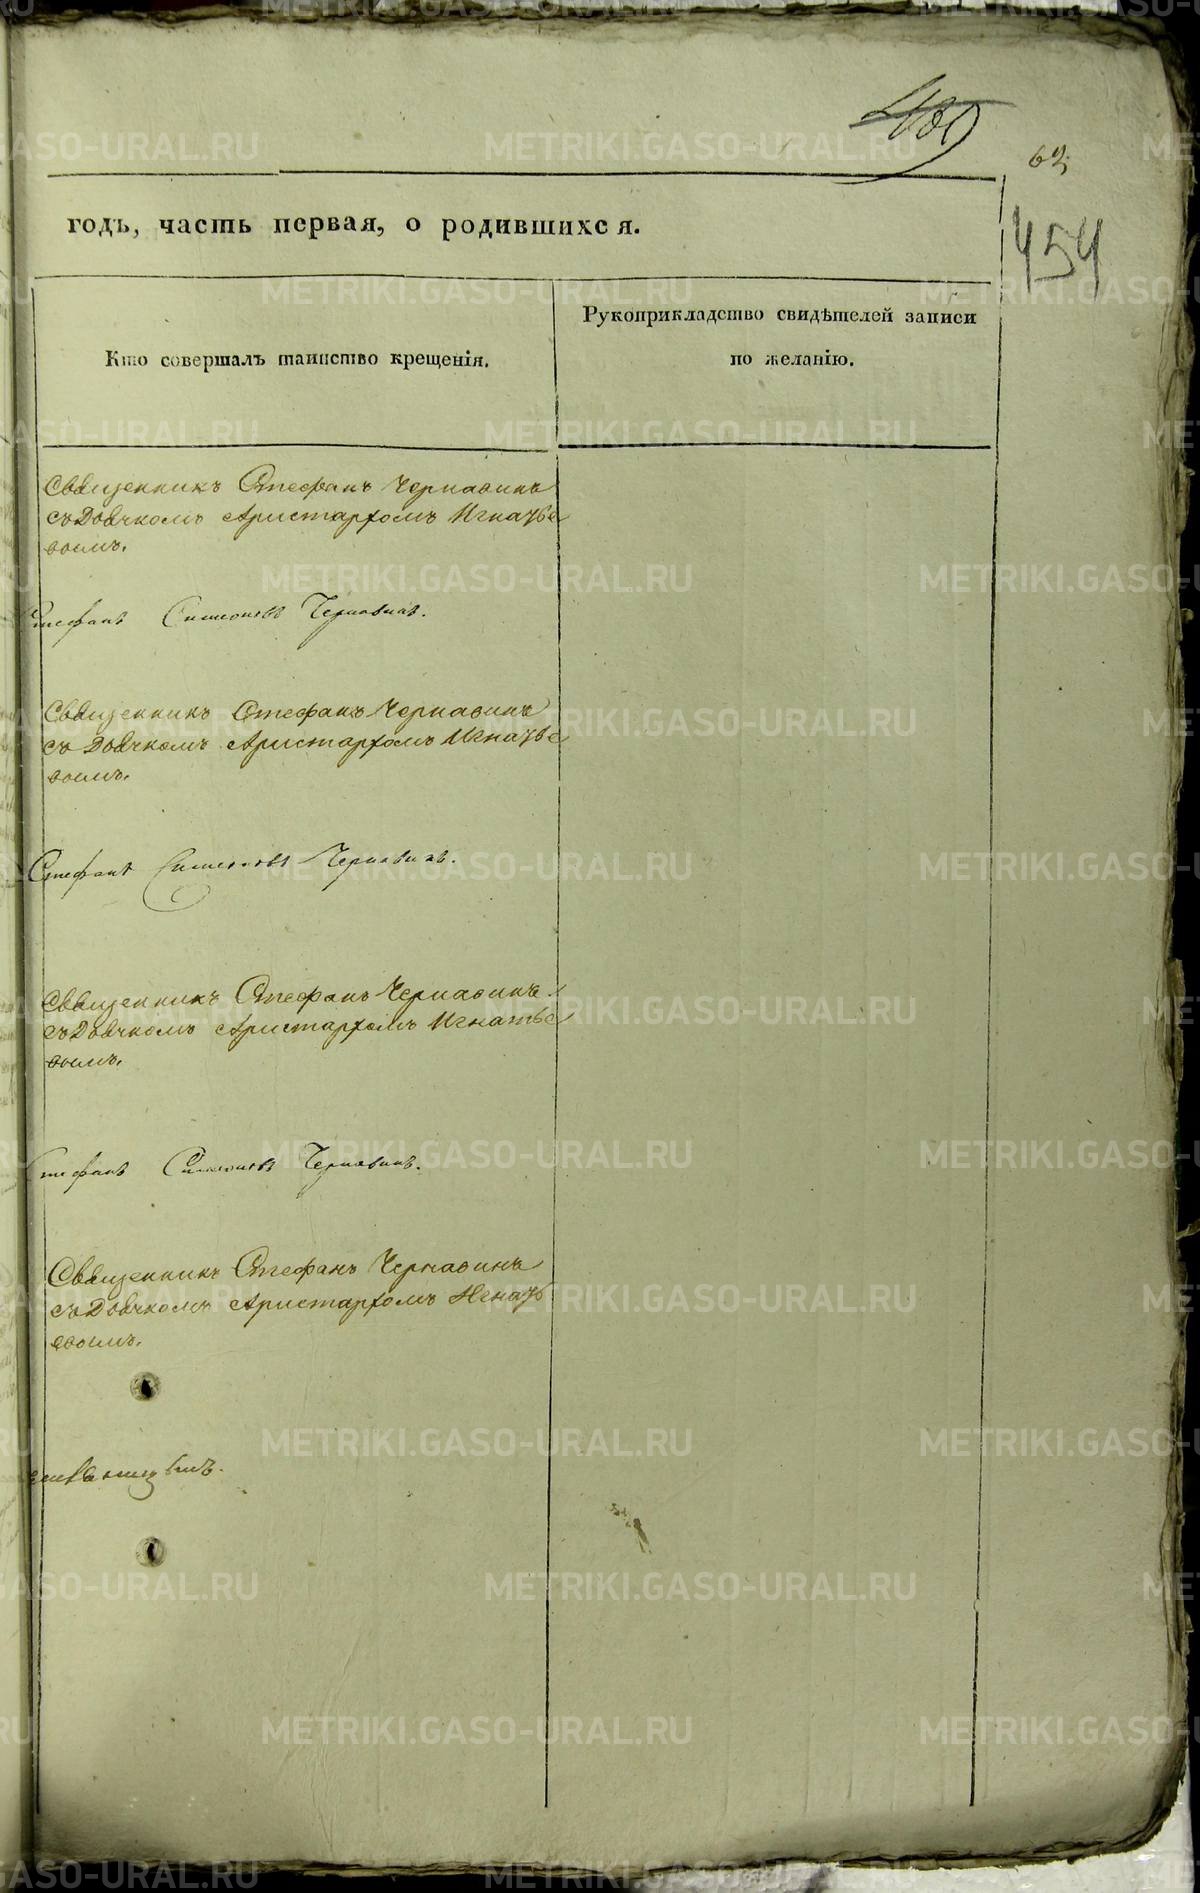 62
454
годъ, часть первая, о родившихся.
Кто совершалъ таинство крещенія.
Рукоприкладство свидѣтелей записи
по желанію.
Священникъ Стефанъ Чернавинъ
съ Дьячкомъ Аристархомъ Игнатье
вымъ.
Стефанъ Симеоновъ Чернавинъ.
Священникъ Стефанъ Чернавинъ
съ Дьячкомъ Аристархомъ Игнатье
вымъ.
Стефанъ Симеоновъ Чернавинъ.
Священникъ Стефанъ Чернавинъ
съ Дьячкомъ Аристархомъ Игнатье
вымъ.
Стефанъ Симеоновъ Чернавинъ.
Священникъ Стефанъ Чернавинъ
съ Дьячкомъ Аристархомъ Игнать
евымъ.
METRIKI.GASO-URAL.RU